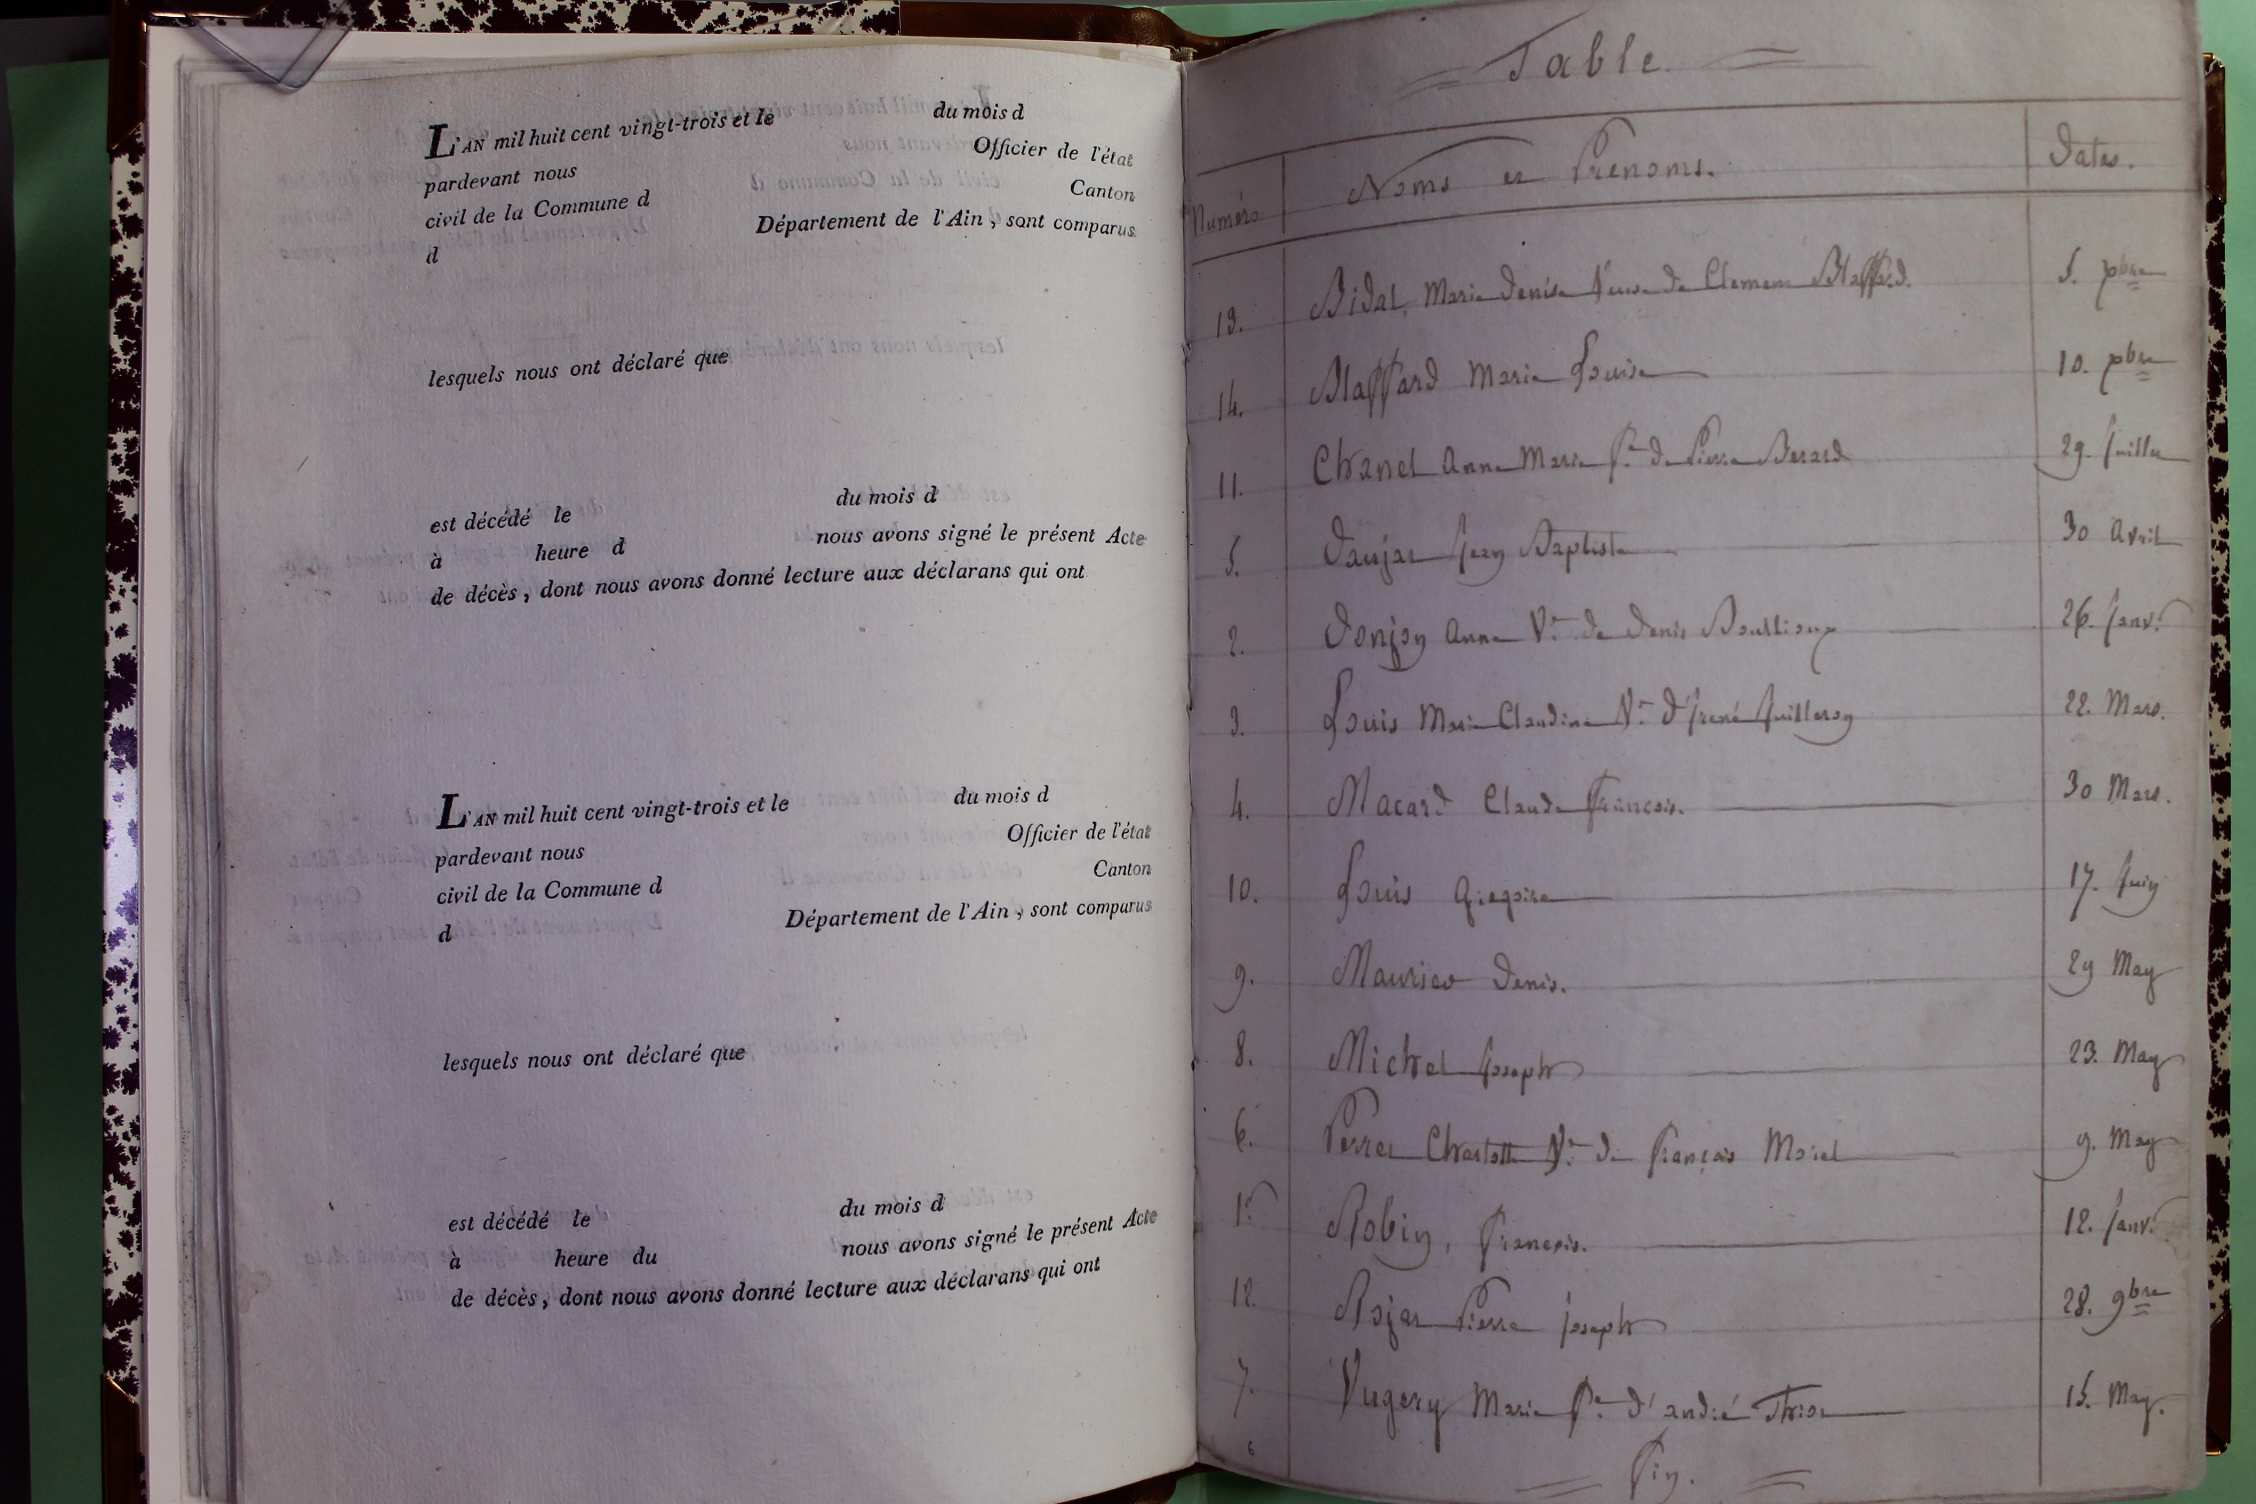 L'AN mil huit cent vingt-trois et le du mois d
pardevant nous Officier de l'état
civil de la Commune d Canton
d Département de l'Ain, sont comparus
lesquels nous ont déclaré que
est décédé le du mois d
à heure d nous avons signé le présent Acte
de décès, dont nous avons donné lecture aux déclarans qui ont
L'AN mil huit cent vingt-trois et le du mois d
pardevant nous Officier de l'état
civil de la Commune d Canton
d Département de l'Ain, sont comparus
lesquels nous ont déclaré que
est décédé le du mois d
à heure du nous avons signé le présent Acte
de décès, dont nous avons donné lecture aux déclarans qui ont
Table
Numéro Noms et Prenoms. Dates.
13. Bidal, Marie Denise Veuve de Clement Blaffard. 5. xbre
14. Blaffard Marie Louise 10. xbre
11. Chanel Anne Marie fe. de Pierre Berard 29. Juillet
5. Daujat Jean Baptiste 30 Avril
2. Donjon Anne Ve. de Denis Boullioux 26. Janv.r
3. Louis Marie Claudine Ve. d'Irené Juilleron 22. Mars.
4. Macard Claude François. 30 Mars.
10. Louis Gregoire 17. Juin
9. Maurice Denis. 29 May
8. Michel Joseph 23. May
6. Perret Charlotte Ve. de François Morel 9. May
1.r Robin, François. 12. Janv.r
12. Rojat Pierre Joseph 28. 9bre
7. Vugery Marie fe. d'andré 15. May.
6
Fin.